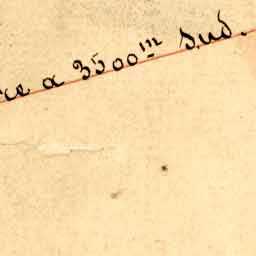 a 3500m Sud.